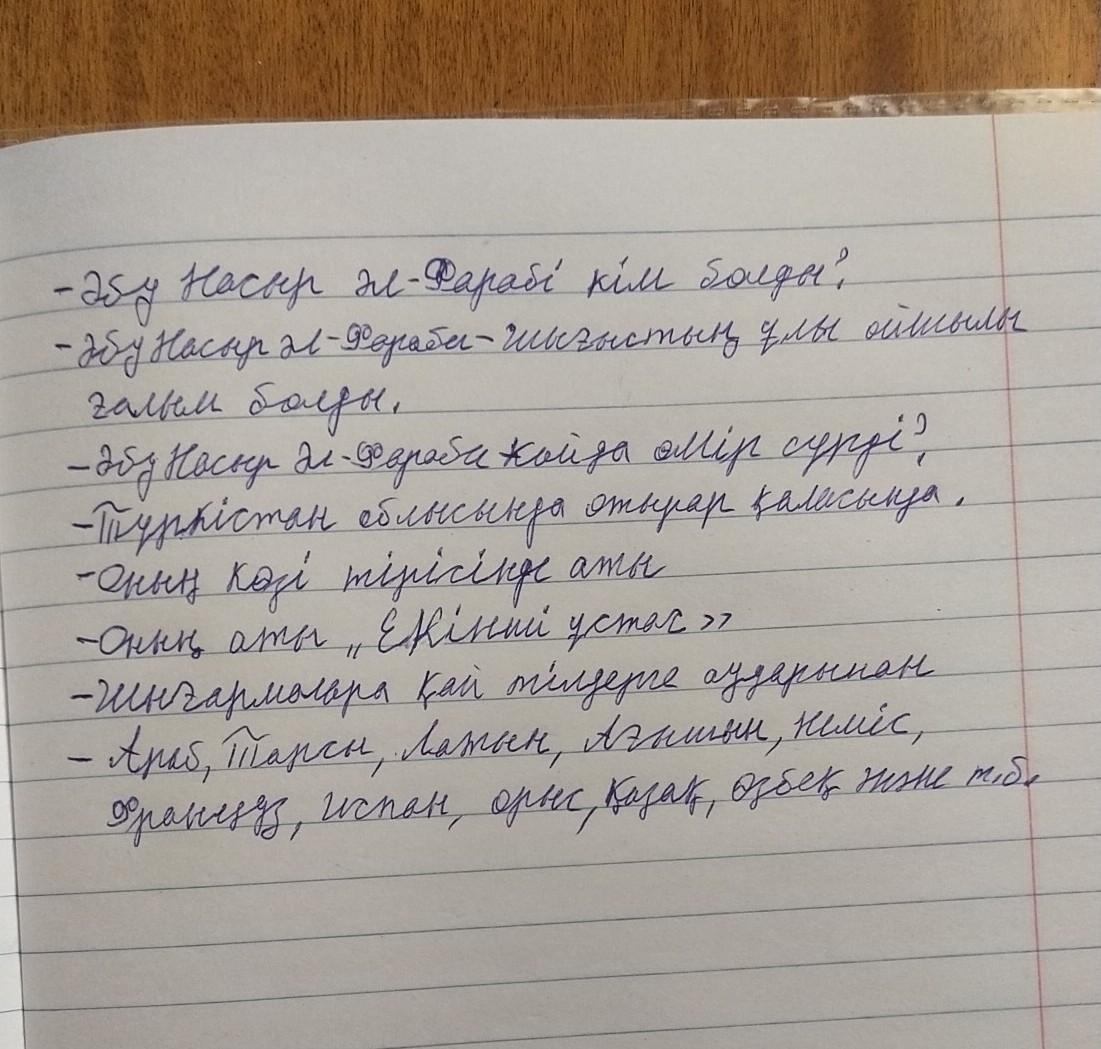 -Әбу Насыр Әл-Фарабі кім болды?
-Әбу Насыр Әл-Фараби-Шығыстың ұлы ойшылы
ғалым болды.
-Әбу Насыр Әл-Фараби қайда өмір сүрді?
-Түркістан облысында отырар қаласында.
-Оның көзі тірісінде аты
-Оның аты „Екінші ұстаз»
-Шығармалара қай тілдерге аударылған
- Араб, Парсы, Латын, Ағылшын, Неміс,
Француз, испан, орыс, қазақ, өзбек және т.б.